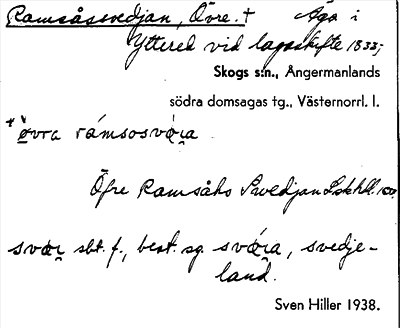 Ramsåssvedjan, Övre. † Äga i
Yttered vid lagaskifte 1833;
Skogs s:n., Ångermanlands
södra domsagas tg., Västernorrl. l.
øvra rámsosvǿra
Öfre Ramsåhs Swedjan Lskhdl.
svør sbt. f., best. sg. svǿra, svedje-
land.
Sven Hiller 1938.